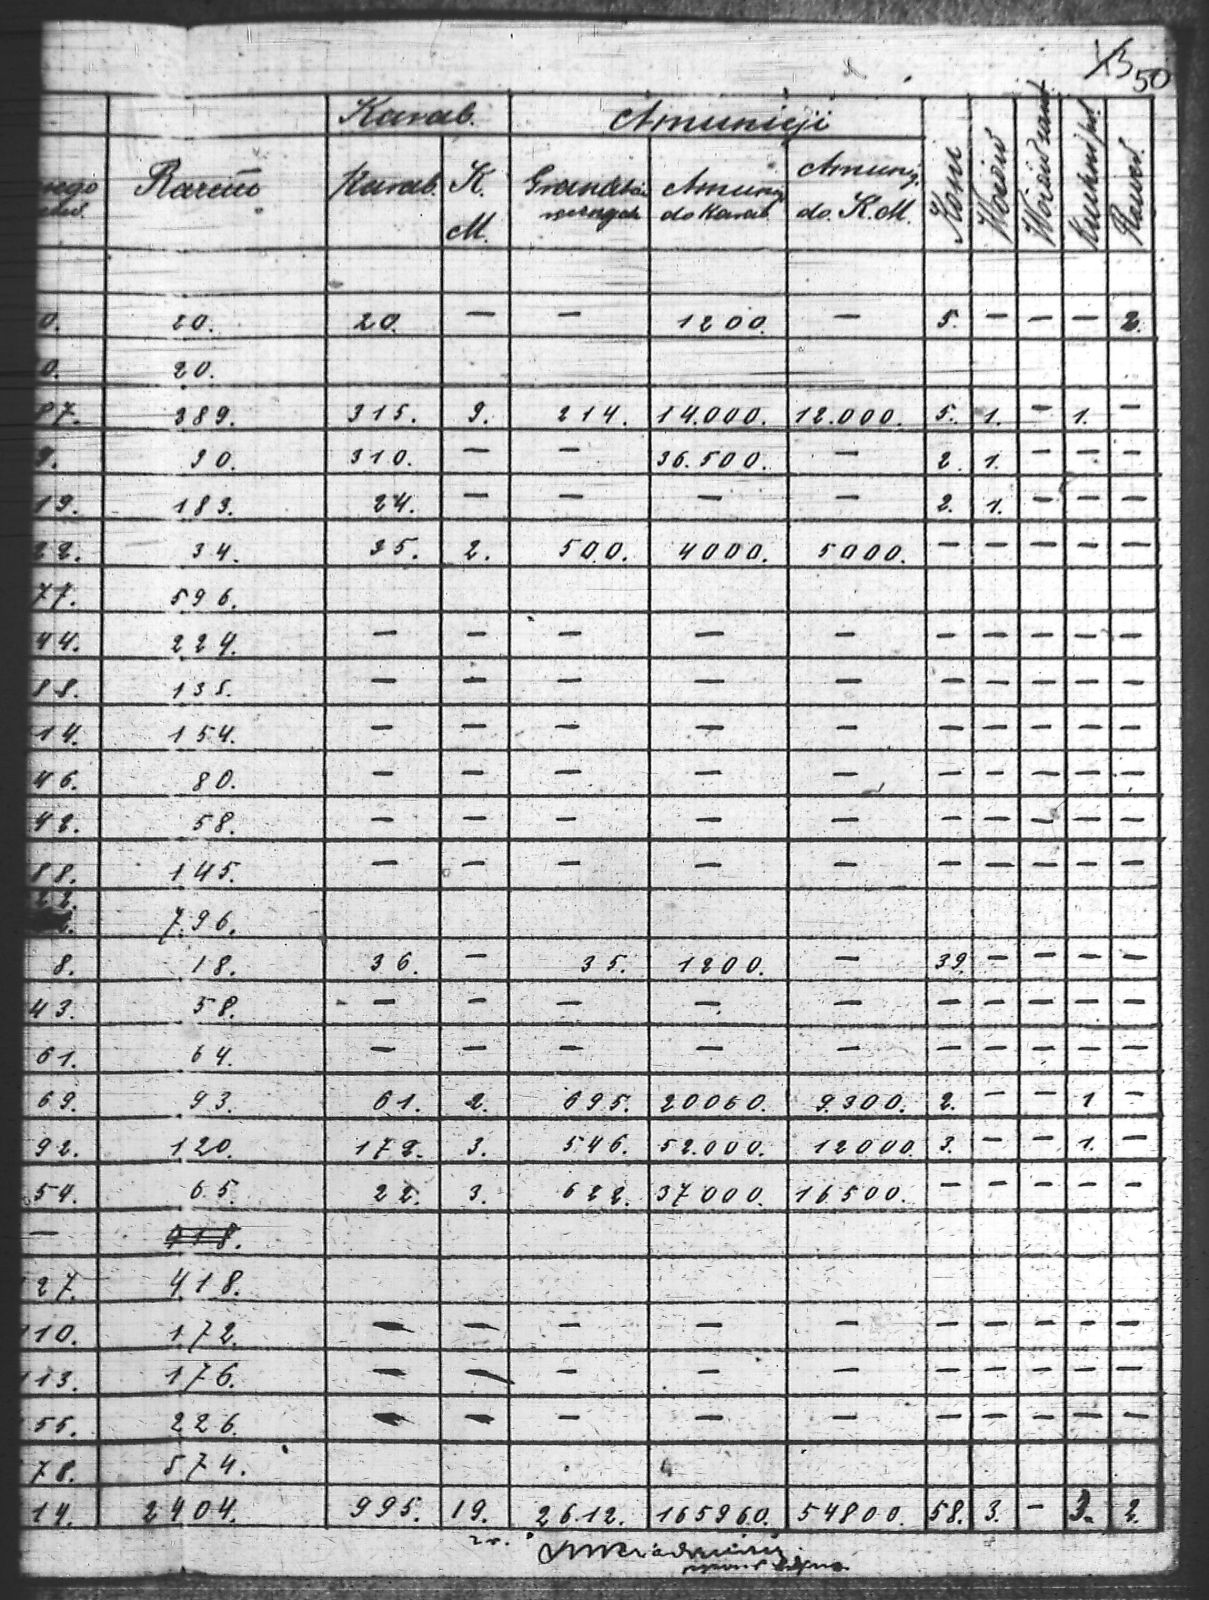 50
Karab. Amunicji
Razem Karab. K. M. Granatów ręcznych Amunicji do Karab. Amunicj. do K.M. Koni Wozów Kuchni pol.
0. 20. 20. — — 1200. — 5. — — — 2.
0. 20.
87. 389. 315. 9. 214. 14.000. 12.000. 5. 1. — 1. —
9. 30. 310. — — 36.500. — 2. 1. — — —
19. 183. 24. — — — — 2. 1. — — —
22. 34. 35. 2. 500. 4000. 5000. — — — — —
77. 596.
44. 224. — — — — — — — — — —
88. 135. — — — — — — — — — —
14. 154. — — — — — — — — — —
46. 80. — — — — — — — — — —
42. 58. — — — — — — — — — —
88. 145. — — — — — — — — — —
22. 796.
8. 18. 36. — 35. 1200. — 39. — — — —
43. 58. — — — — — — — — — —
61. 64. — — — — — — — — — —
69. 93. 61. 2. 695. 20060. 9.300. 2. — — 1. —
92. 120. 172. 3. 546. 52.000. 12000. 3. — — 1. —
54. 65. 22. 3. 622. 37000. 16500. — — — — —
— 918.
27. 418.
110. 172. — — — — — — — — — —
113. 176. — — — — — — — — — —
55. 226. — — — — — — — — — —
78. 574.
14. 2404. 995. 19. 2612. 165960. 54800. 58. 3. — 3. 2.